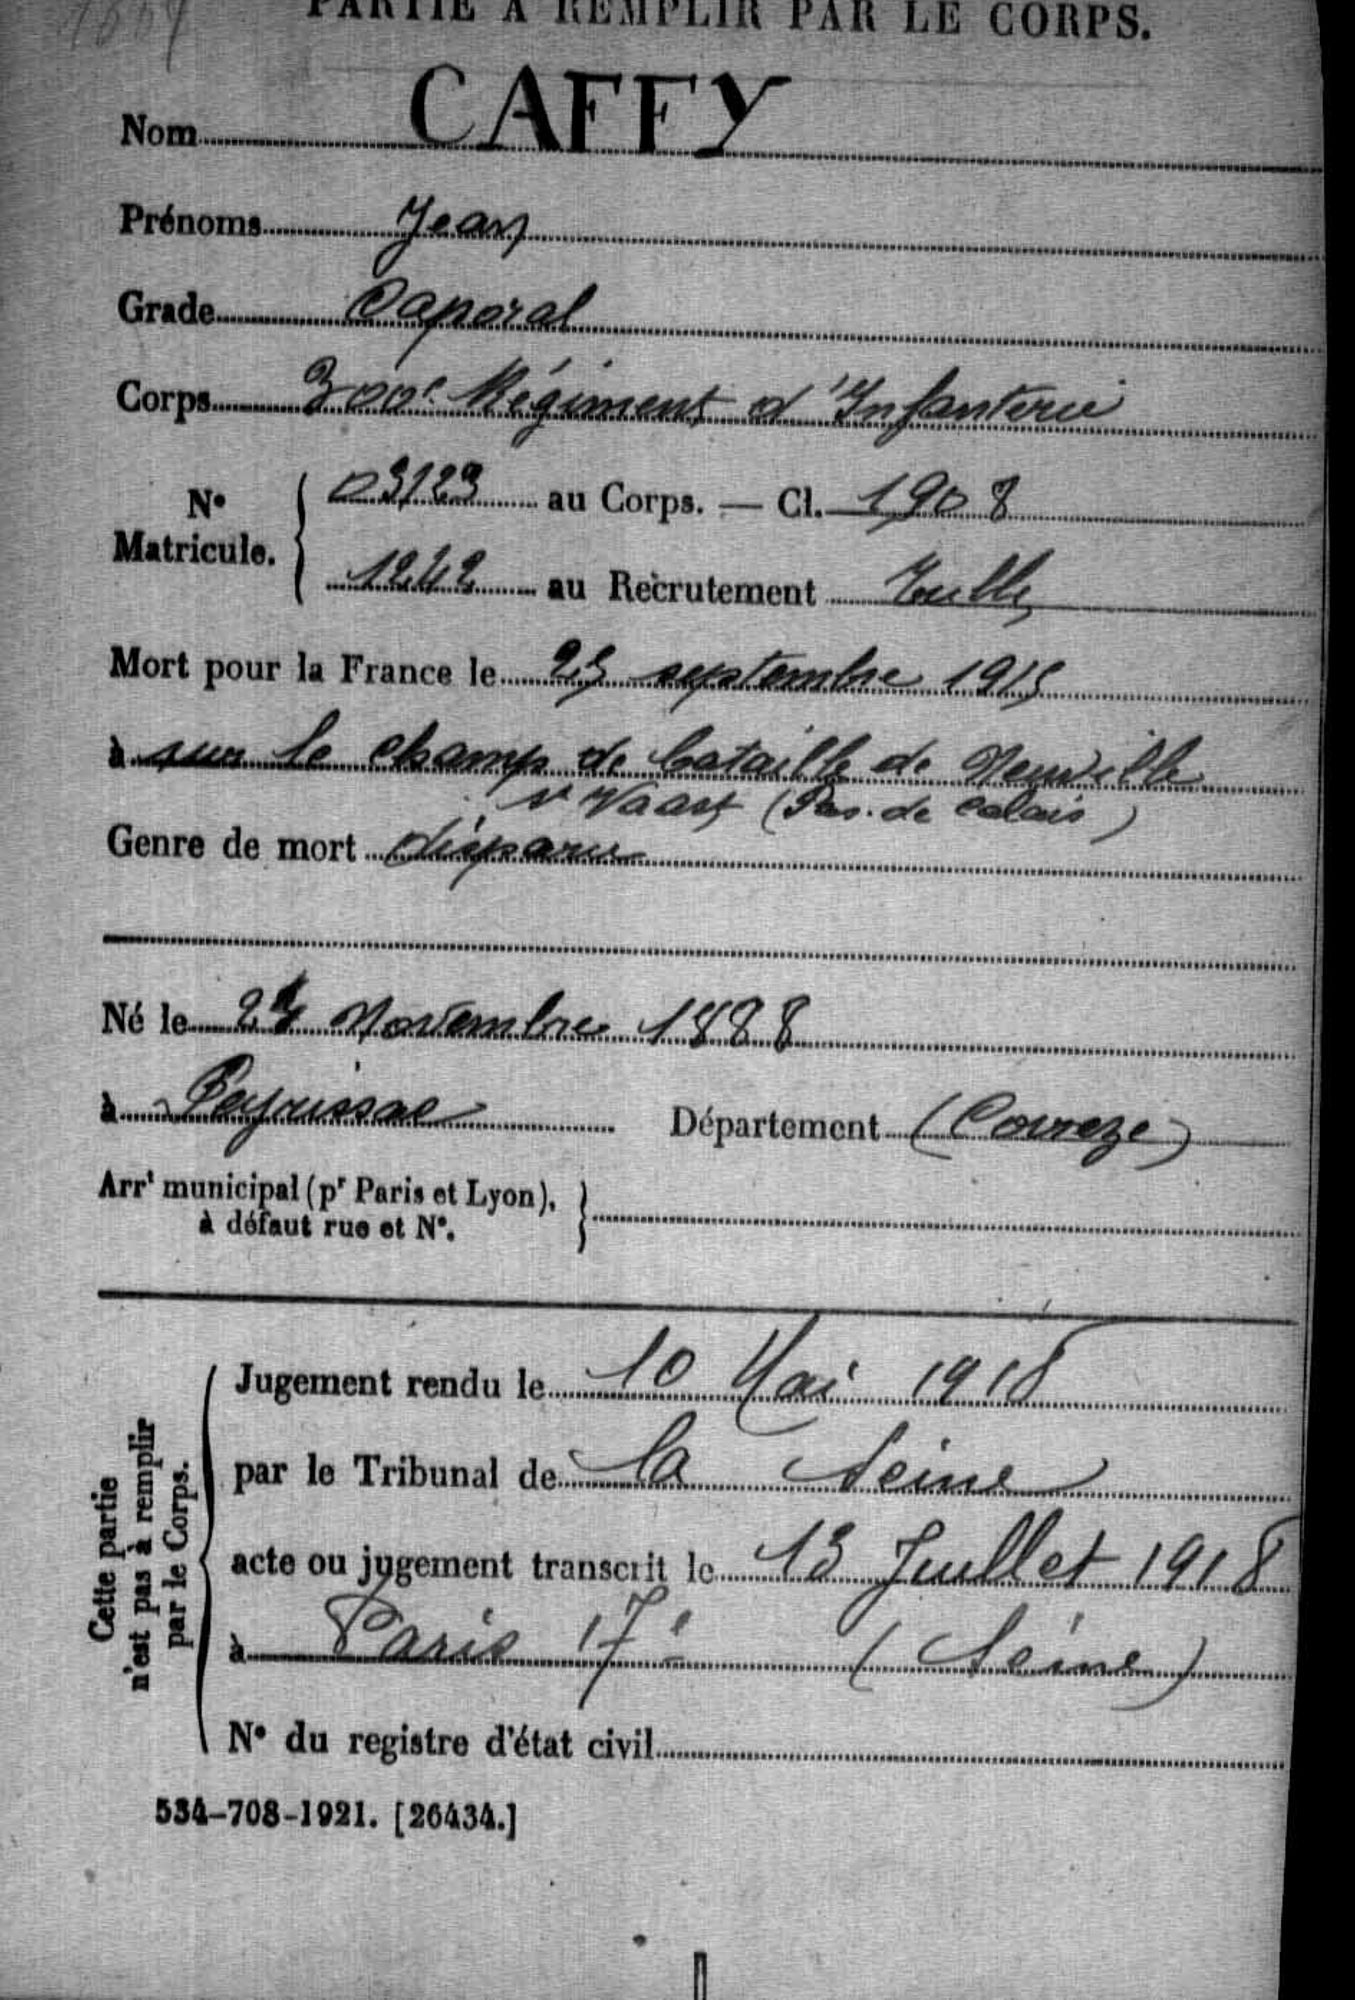 PARTIE A REMPLIR PAR LE CORPS.
Nom CAFFY
Prénoms Jean
Grade Caporal
Corps 300e Régiment d'Infanterie
N° Matricule. { 03123 au Corps. — Cl. 1908
1242 au Recrutement Tulle
Mort pour la France le 25 septembre 1915
à sur le champ de bataille de Neuville
St Vaast (Pas. de Calais)
Genre de mort disparu
Né le novembre 1888
à Peyrissac Département (Correze)
Arrt municipal (pr Paris et Lyon), }
à défaut rue et N°.
Cette partie
n'est pas à remplir
par le Corps.
Jugement rendu le 10 Mai 1918
par le Tribunal de la Seine
acte ou jugement transcrit le 13 Juillet 1918
à Paris 17e (Seine)
N° du registre d'état civil
534-708-1921. [26434.]